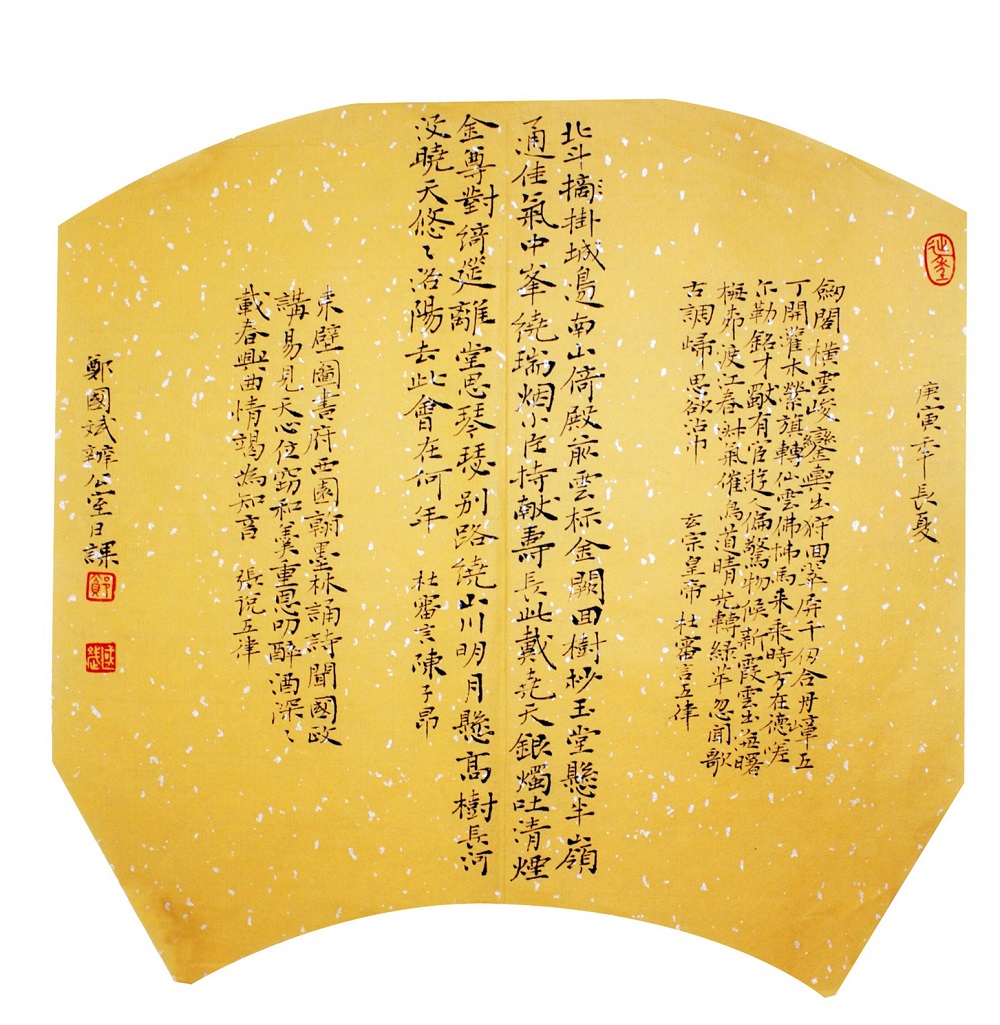 庚寅年長夏
劍閣橫雲峻鑾輿出狩回翠屏千仞合丹嶂五
丁開灌木縈旗轉仙雲佛拂馬来乘時方在德嗟
尒勒銘才獨有宦遊人偏驚物候新霞雲出海曙
梅柳渡江春淑氣催鳥道晴光轉綠苹忽聞歌
古調歸思欲沾巾 玄宗皇帝 杜審言五律
北斗摛掛城邊南山倚殿前雲标金闕回樹杪玉堂懸半嶺
通佳氣中峯繞瑞烟小臣持献壽長此戴堯天銀燭吐清煙
金尊對綺筵離堂思琴瑟別路繞山川明月懸高樹長河
没曉天悠〻洛陽去此會在何年 杜審言陳子昂
東壁圖書府西園翰墨林誦詩聞國政
講易見天心位窃和羹重恩叨醉酒深〻
載春興曲情竭為知音 張説五律
鄭國斌辦公室日課
鄭
國斌